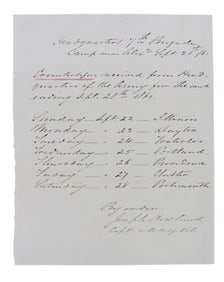 Headquarters 7th Brigade
Camp near Sept. 21st /61
Countersigns received from Head
quarters of the Army for the week
ending Sept. 28th 1861.
Sunday Sept 22 — Illinois
Monday " 23 — Dayton
Tuesday " 24 — Waterloo
Wednesday " 25 — Portland
Thursday " 26 — Providence
Friday " 27 — Chester
Saturday " 28 — Portsmouth
By order
Joseph
Capt &